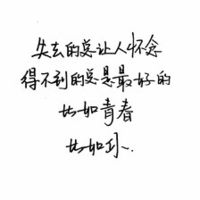 失去的总让人怀念
得不到的总是最好的
比如青春
比如